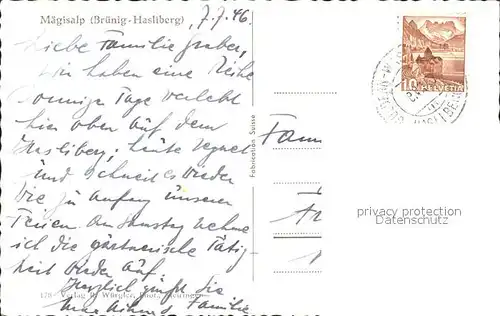 Mägisalp (Brünig-Hasliberg)
7.7.46
Liebe Familie Graber,
Wir haben eine Reihe
sonnige Tage verlebt
hier oben auf dem
Hasliberg; heute regnet
und schneit es wieder
wie zu Anfang unserer
Ferien. Am Samstag nehme
ich die gärtnerische Tätig-
keit wieder auf.
Herzlich grüsst Sie
Familie
178 Verlag Würgler, Meiringen
Fabrication Suisse
Fam
10 HELVETIA
HASLIBERG
privacy protection
Datenschutz